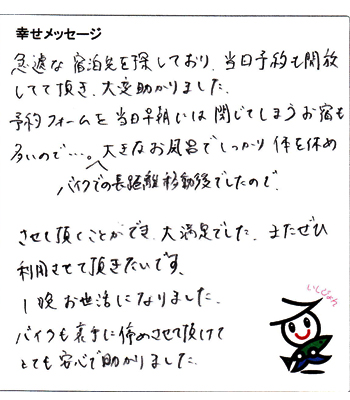 幸せメッセージ
急遽な宿泊先を探しており、当日予約も開放
してて頂き、大変助かりました。
予約フォームを当日早朝には閉じてしまうお宿も
多いので…。大きなお風呂でしっかり体を休め
バイクでの長距離移動後でしたので、
させて頂くことができ、大満足でした。またぜひ
利用させて頂きたいです。
1晩お世話になりました。
バイクも裏手に停めさせて頂けて
とても安心で助かりました。